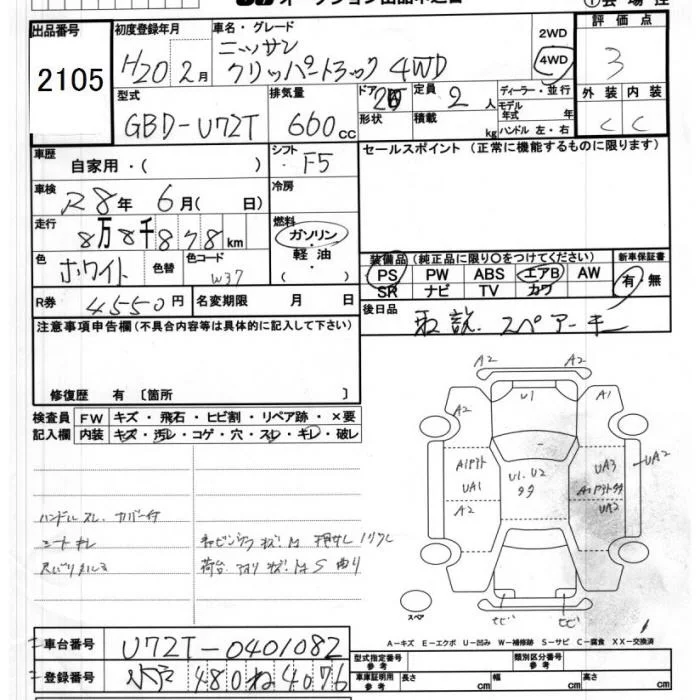 出品番号 2105
初度登録年月 H20 2月
車名・グレード ニッサン
クリッパートラック 4WD
2WD
4WD
評価点 3
外装 内装
C C
型式 GBD-U72T
排気量 660 cc
ドア 2
形状
定員 2 人
積載 kg
ディーラー・並行
モデル年式 年
ハンドル 左・右
車歴 自家用・( )
シフト F5
セールスポイント (正常に機能するものに限ります)
車検 R8年 6月( 日)
冷房
走行 8万8千878km
燃料 ガソリン・軽油・( )
色 ホワイト 色替
色コード W37
R券 4550円
名変期限 月 日
装備品 (純正品に限り○をつけてください)
PS PW ABS エアB AW
SR ナビ TV カワ
新車保証書 有・無
後日品 取説. スペアーキー
注意事項申告欄 (不具合内容等は具体的に記入して下さい)
修復歴 有 〔箇所 〕
検査員記入欄 FW キズ・飛石・ヒビ割・リペア跡・×要
内装 キズ・汚レ・コゲ・穴・スレ・キレ・破レ
ハンドルスレ カバー付
シートキレ
A2 A2
A2 U1 A1
UA3 UA2
UA1 U1. U2
A2 UA2
サビ サビ
スペア
A-キズ E-エクボ U-凹み W-補修跡 S-サビ C-腐食 XX-交換済
車台番号 U72T-0401082
登録番号 水戸 480 ね 4076
型式指定番号 参考
類別区分番号 参考
車庫証明用 参考 長さ cm 幅 cm 高さ cm